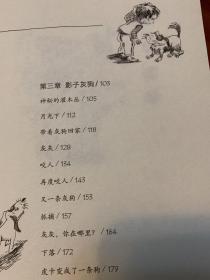 第三章 影子灰狗/103
神秘的灌木丛/105
月光下/112
带着灰狗回家/118
灰灰/128
咬人/134
再度咬人/143
又一条灰狗/153
抓捕/157
灰灰，你在哪里？/164
下落/172
皮卡变成了一条狗/179